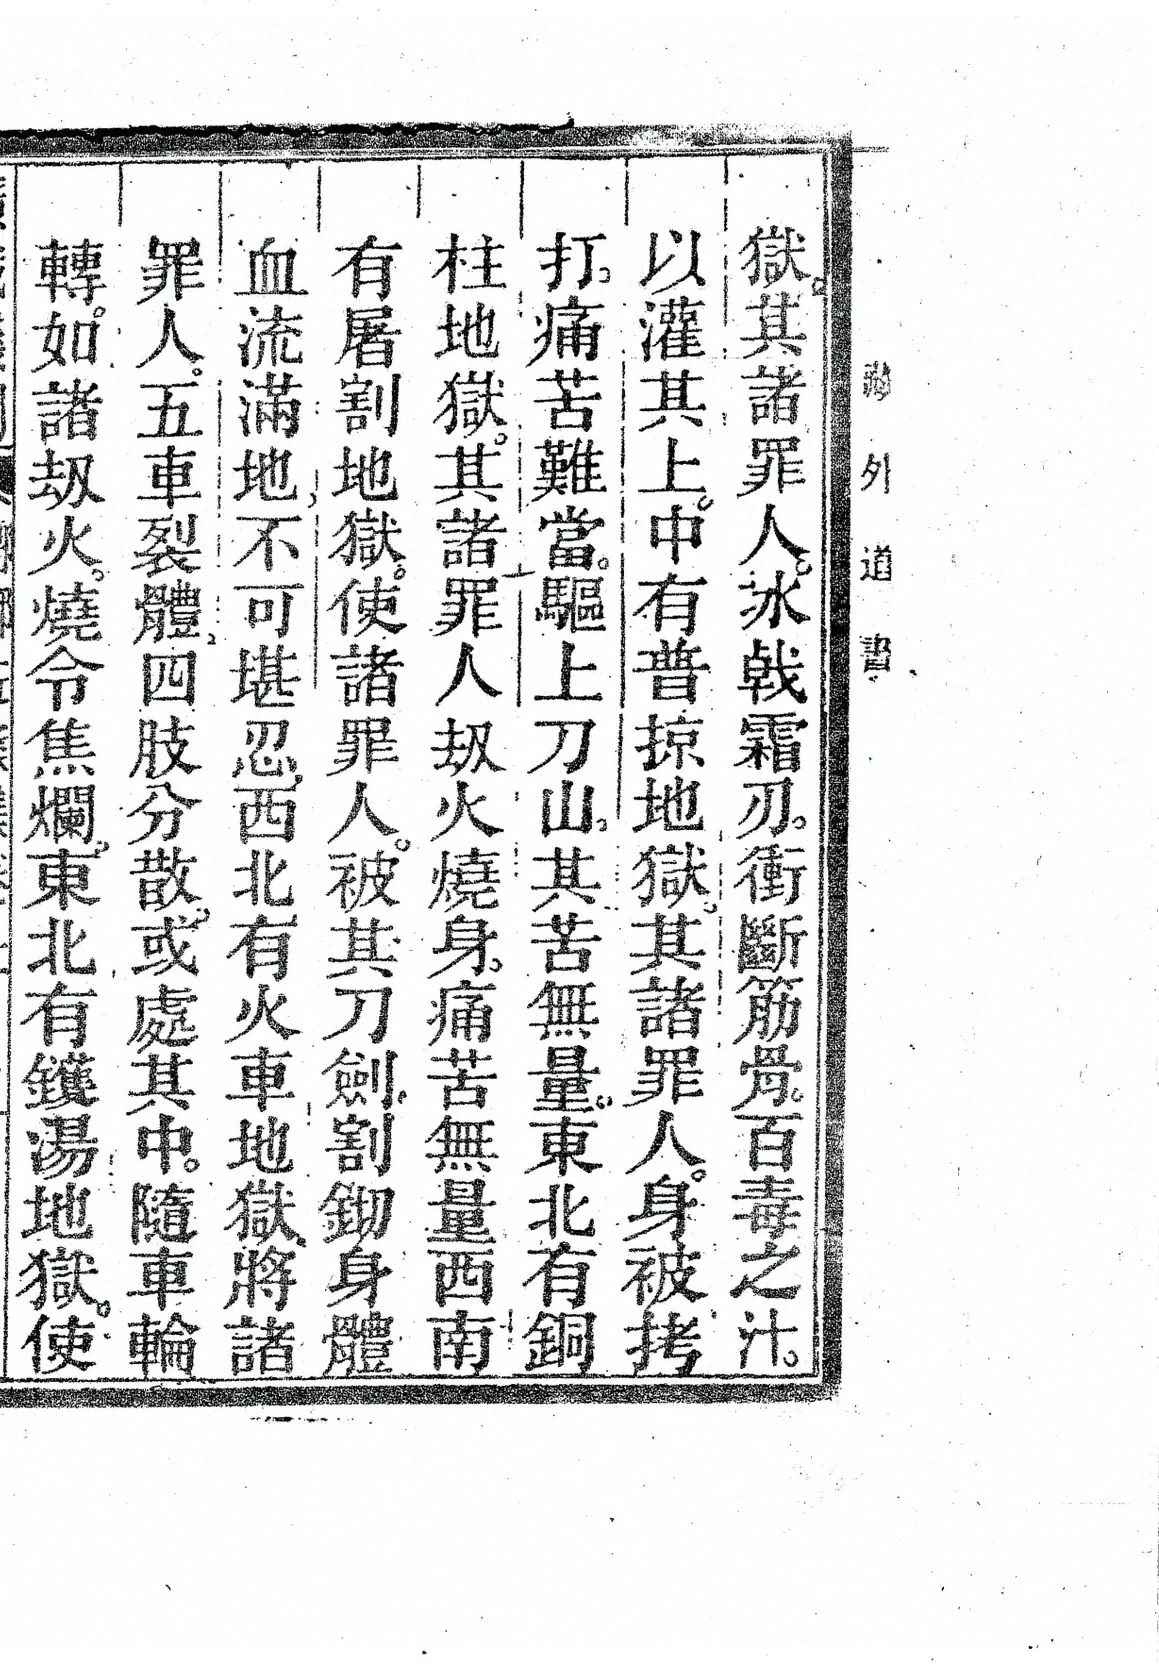 藏外道書
獄。其諸罪人。冰戟霜刃。衝斷筋骨。百毒之汁。
以灌其上。中有普掠地獄。其諸罪人。身被拷
打。痛苦難當。驅上刀山。其苦無量。東北有銅
柱地獄。其諸罪人刼火燒身。痛苦無量西南
有屠割地獄。使諸罪人。被其刀劍。割𨧀身體
血流滿地。不可堪忍。西北有火車地獄。將諸
罪人。五車裂體。四肢分散。或處其中。隨車輪
轉。如諸刼火。燒令焦爛。東北有鑊湯地獄。使